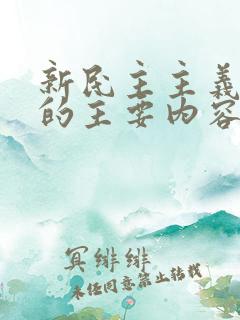 新民主主義
的主要内容
冥緋緋
未任同意禁止转载